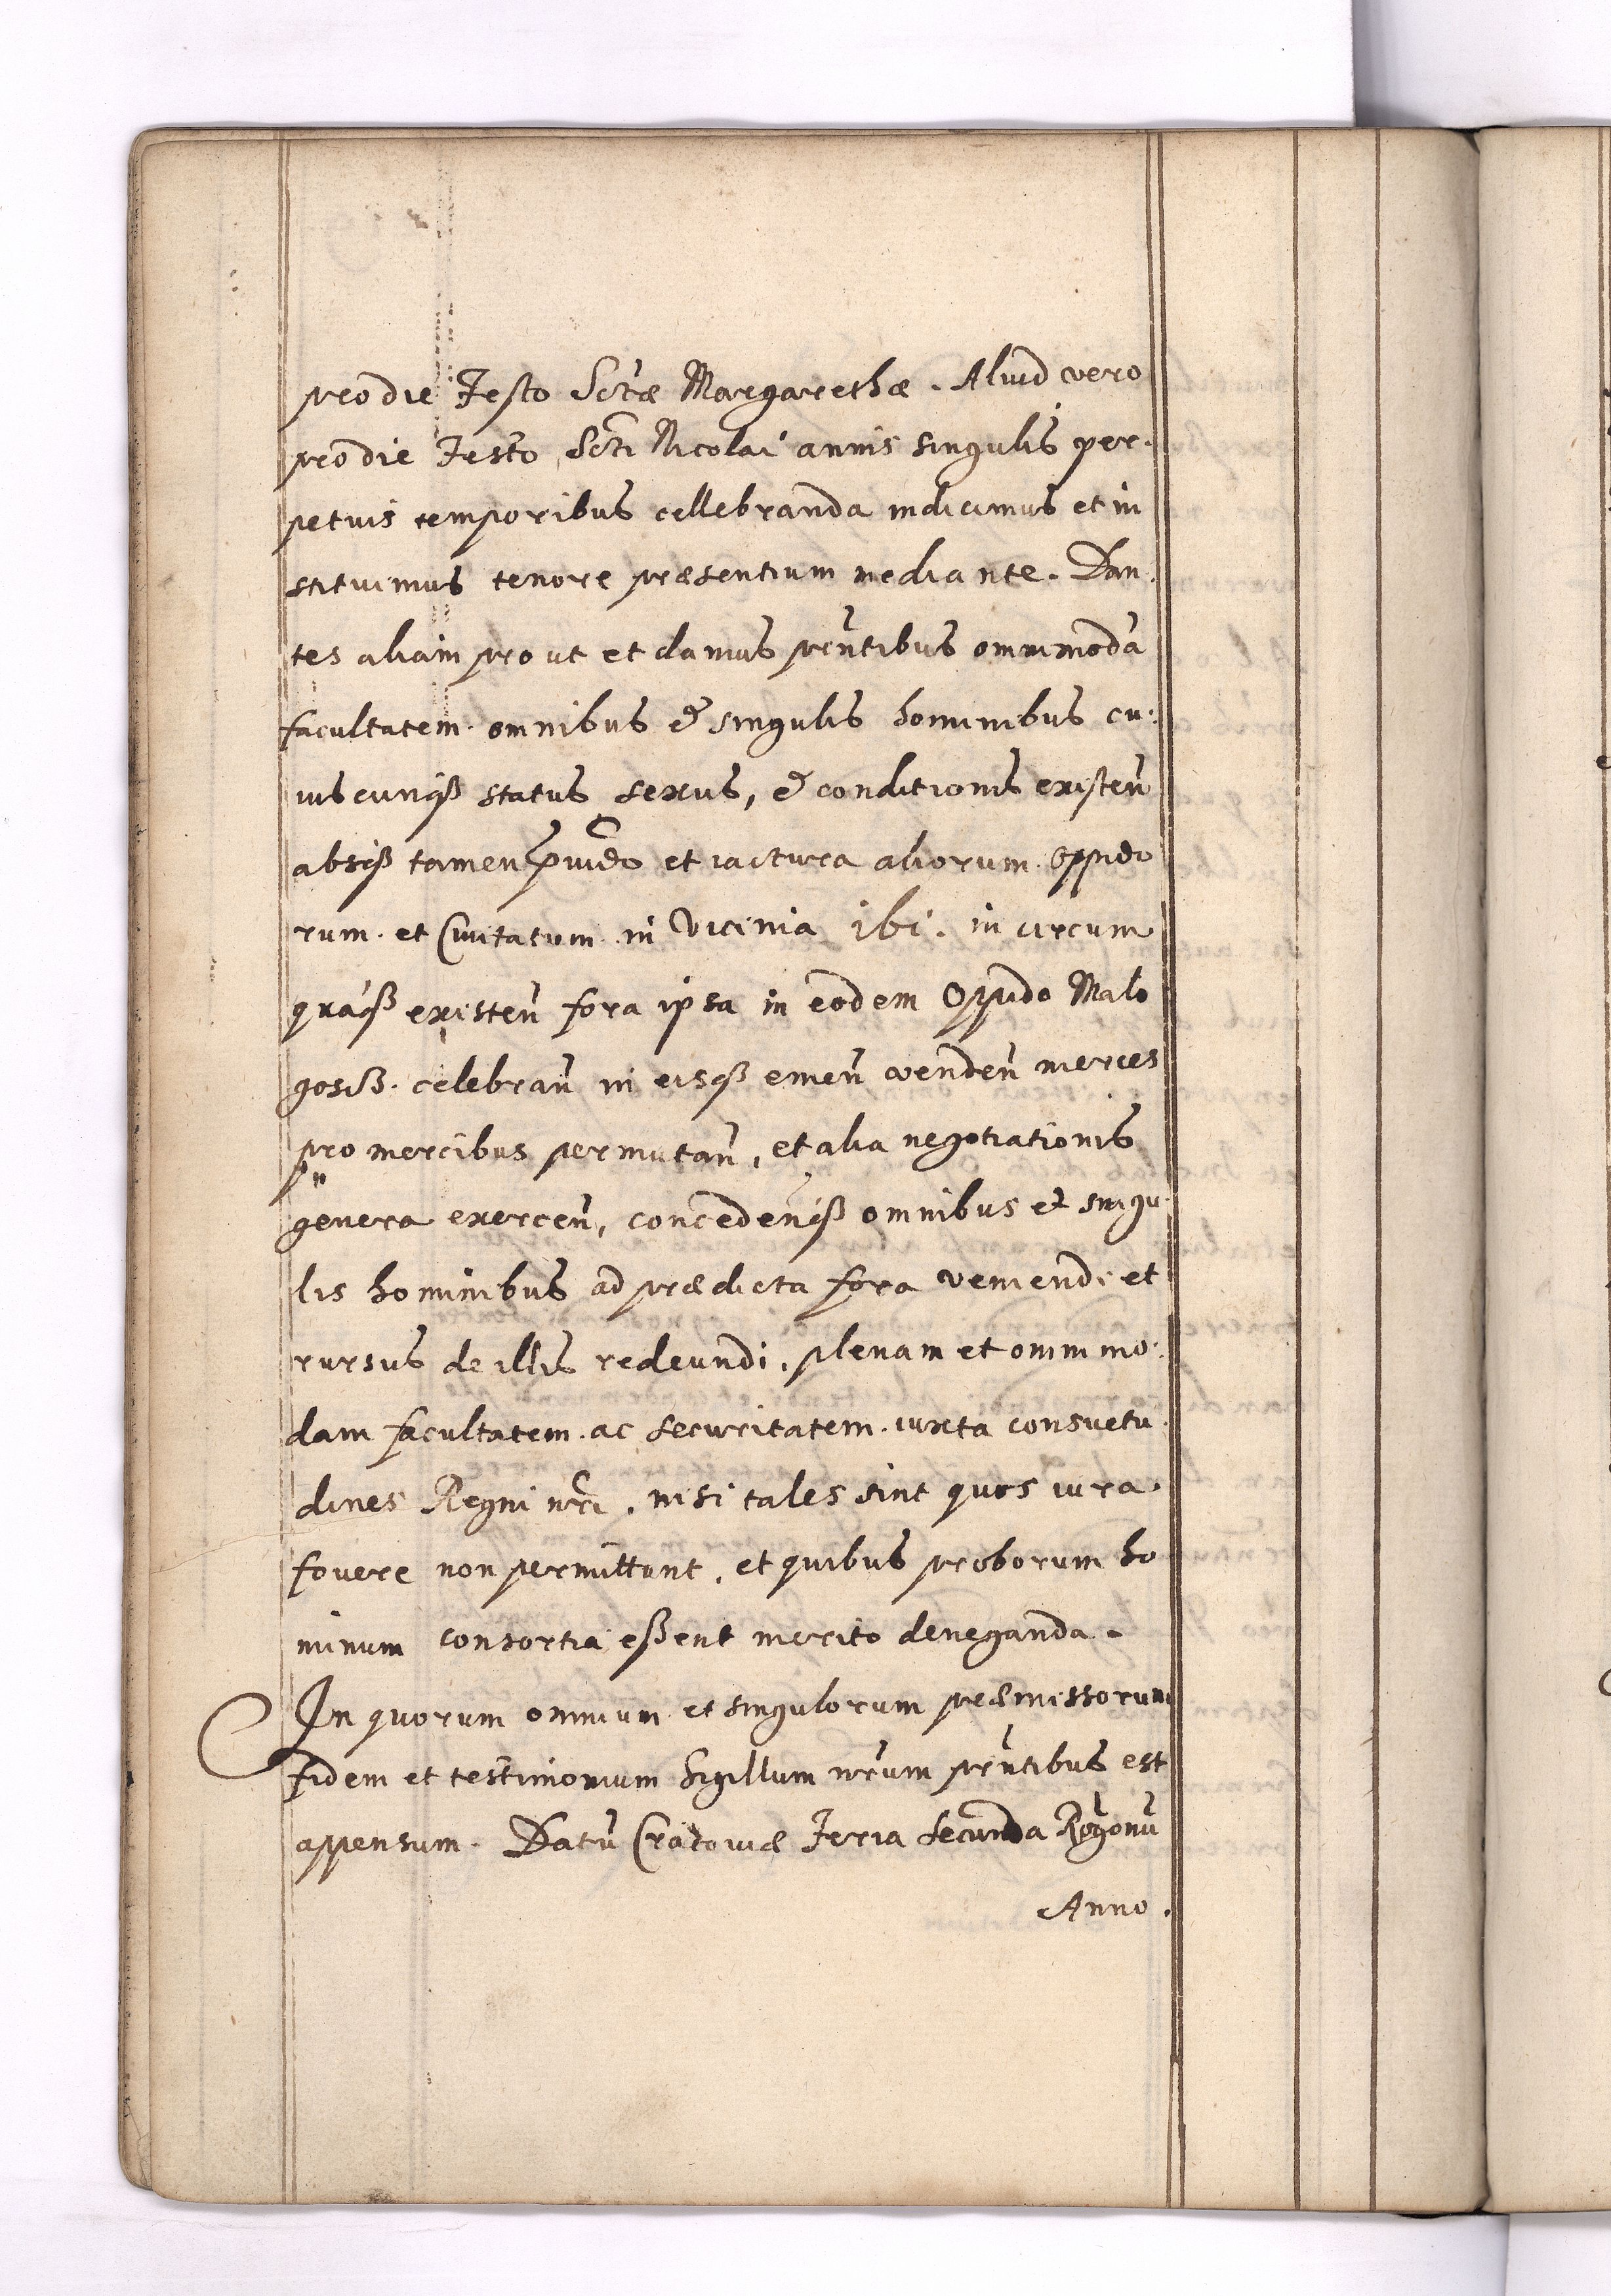 pro die Festo Sctæ Margarethæ. Aliud vero
pro die Festo Scti Nicolai annis singulis per
petuis temporibus cellebranda indicimus et in
stituimus tenore præsentium mediante. Dan
tes aliam pro ut et damus pn̄tibus ommimodā
facultatem omnibus & singulis hominibus cu:
iuscunqß status sexus, & conditionis existen̄
absqß tamen et iactura aliorum Oppido
rum et Civitatum in Vicinia ibi in circum
existen̄ fora ipsa in eodem Oppido Malo
gosß. celebran̄ in eisqß emen̄ venden̄ merces
pro mercibus permutan̄, et alia negotiationis
genera exercen̄, concedenqß omnibus et singu
lis hominibus ad prædicta fora veniendi et
rursus de illis redeundi, plenam et ommimo:
dam facultatem ac securitatem iuxta consuetu
dines Regni nri, nisi tales sint quos iura
fouere non permittunt, et quibus proborum ho
minum consortia eßent merito deneganda.
In quorum omnium et singulorum præmissorum
fidem et testimonium Sigillum nrum pn̄tibus est
appensum. Datū Cracoviæ Feria secunda Rogonū
Anno.